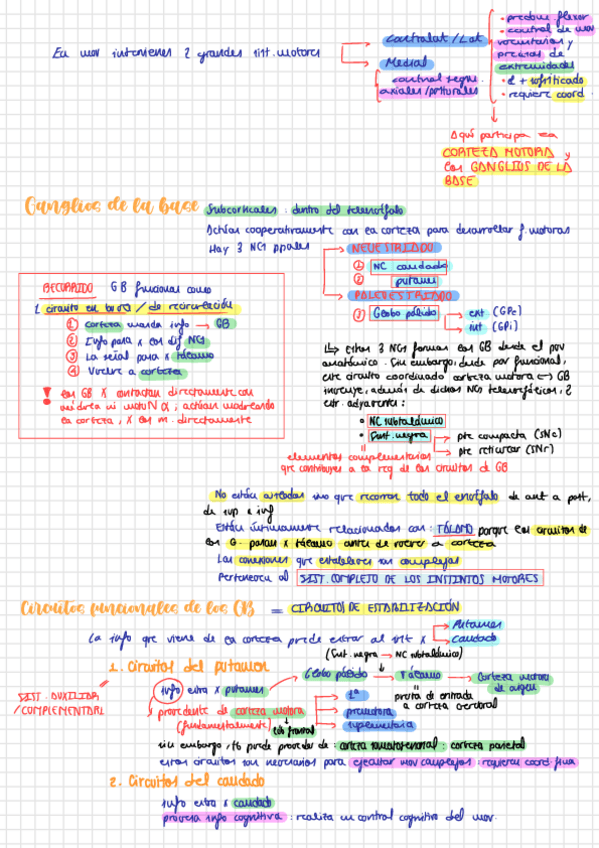 En mov intervienen 2 grandes sist. motores
Contralat / Lat
Medial
control segm.
axiales/posturales
• predom. flexor
• control de mov
voluntarios y
precisos de
extremidades
• el + sofisticado
• requiere coord.
Aquí participa la
CORTEZA MOTORA y
los GANGLIOS DE LA
BASE
Ganglios de la base
Subcorticales: dentro del telencéfalo
Actúan cooperativamente con la corteza para desarrollar f. motoras
Hay 3 NC1 ppales
NEOESTRIADO
① NC caudado
② putamen
PALEOESTRIADO
③ Globo pálido
ext (GPe)
int (GPi)
RECORRIDO GB funcional como
1 circuito en bucle / de recirculación
① Corteza manda info → GB
② Info pasa x los dif NC1
③ La señal pasa x tálamo
④ Vuelve a corteza
! los GB X contactan directamente con
médula ni motoN α, actúan modulando
la corteza, X los m. directamente
↳ estos 3 NC1 forman los GB desde el pov
anatómico. Sin embargo, desde pov funcional,
este circuito coordinado corteza motora ↔ GB
incluye, además de dichos NC1 telencefálicos, 2
estr. adyacentes:
• NC subtalámico
• Sust. negra
pte compacta (SNc)
pte reticular (SNr)
elementos complementarios
que contribuyen a la reg de los circuitos de GB
No están aislados sino que recorren todo el encéfalo de ant a post,
de sup e inf
Están íntimamente relacionados con: TÁLAMO porque los circuitos de
los G. pasan x tálamo antes de volver a corteza
Las conexiones que establecen son complejas
Pertenecen al SIST. COMPLETO DE LOS INSTINTOS MOTORES
Circuitos funcionales de los GB = CIRCUITOS DE ESTABILIZACIÓN
La info que viene de la corteza puede entrar al sist x
Putamen
Caudado
(Sust. negra → NC subtalámico)
1. Circuitos del putamen
SIST. AUXILIAR
/COMPLEMENTARI
Info entra x putamen
Globo pálido → Tálamo → Corteza motora
de origen
puerta de entrada
a corteza cerebral
procedente de corteza motora
(fundamentalmente)
lób frontal
1ª
premotora
suplementaria
sin embargo, tb puede proceder de: corteza somatosensorial: corteza parietal
estos circuitos son necesarios para ejecutar mov complejos: requieren coord. fina
2. Circuitos del caudado
Info entra x caudado
procesa info cognitiva: realiza un control cognitivo del mov.